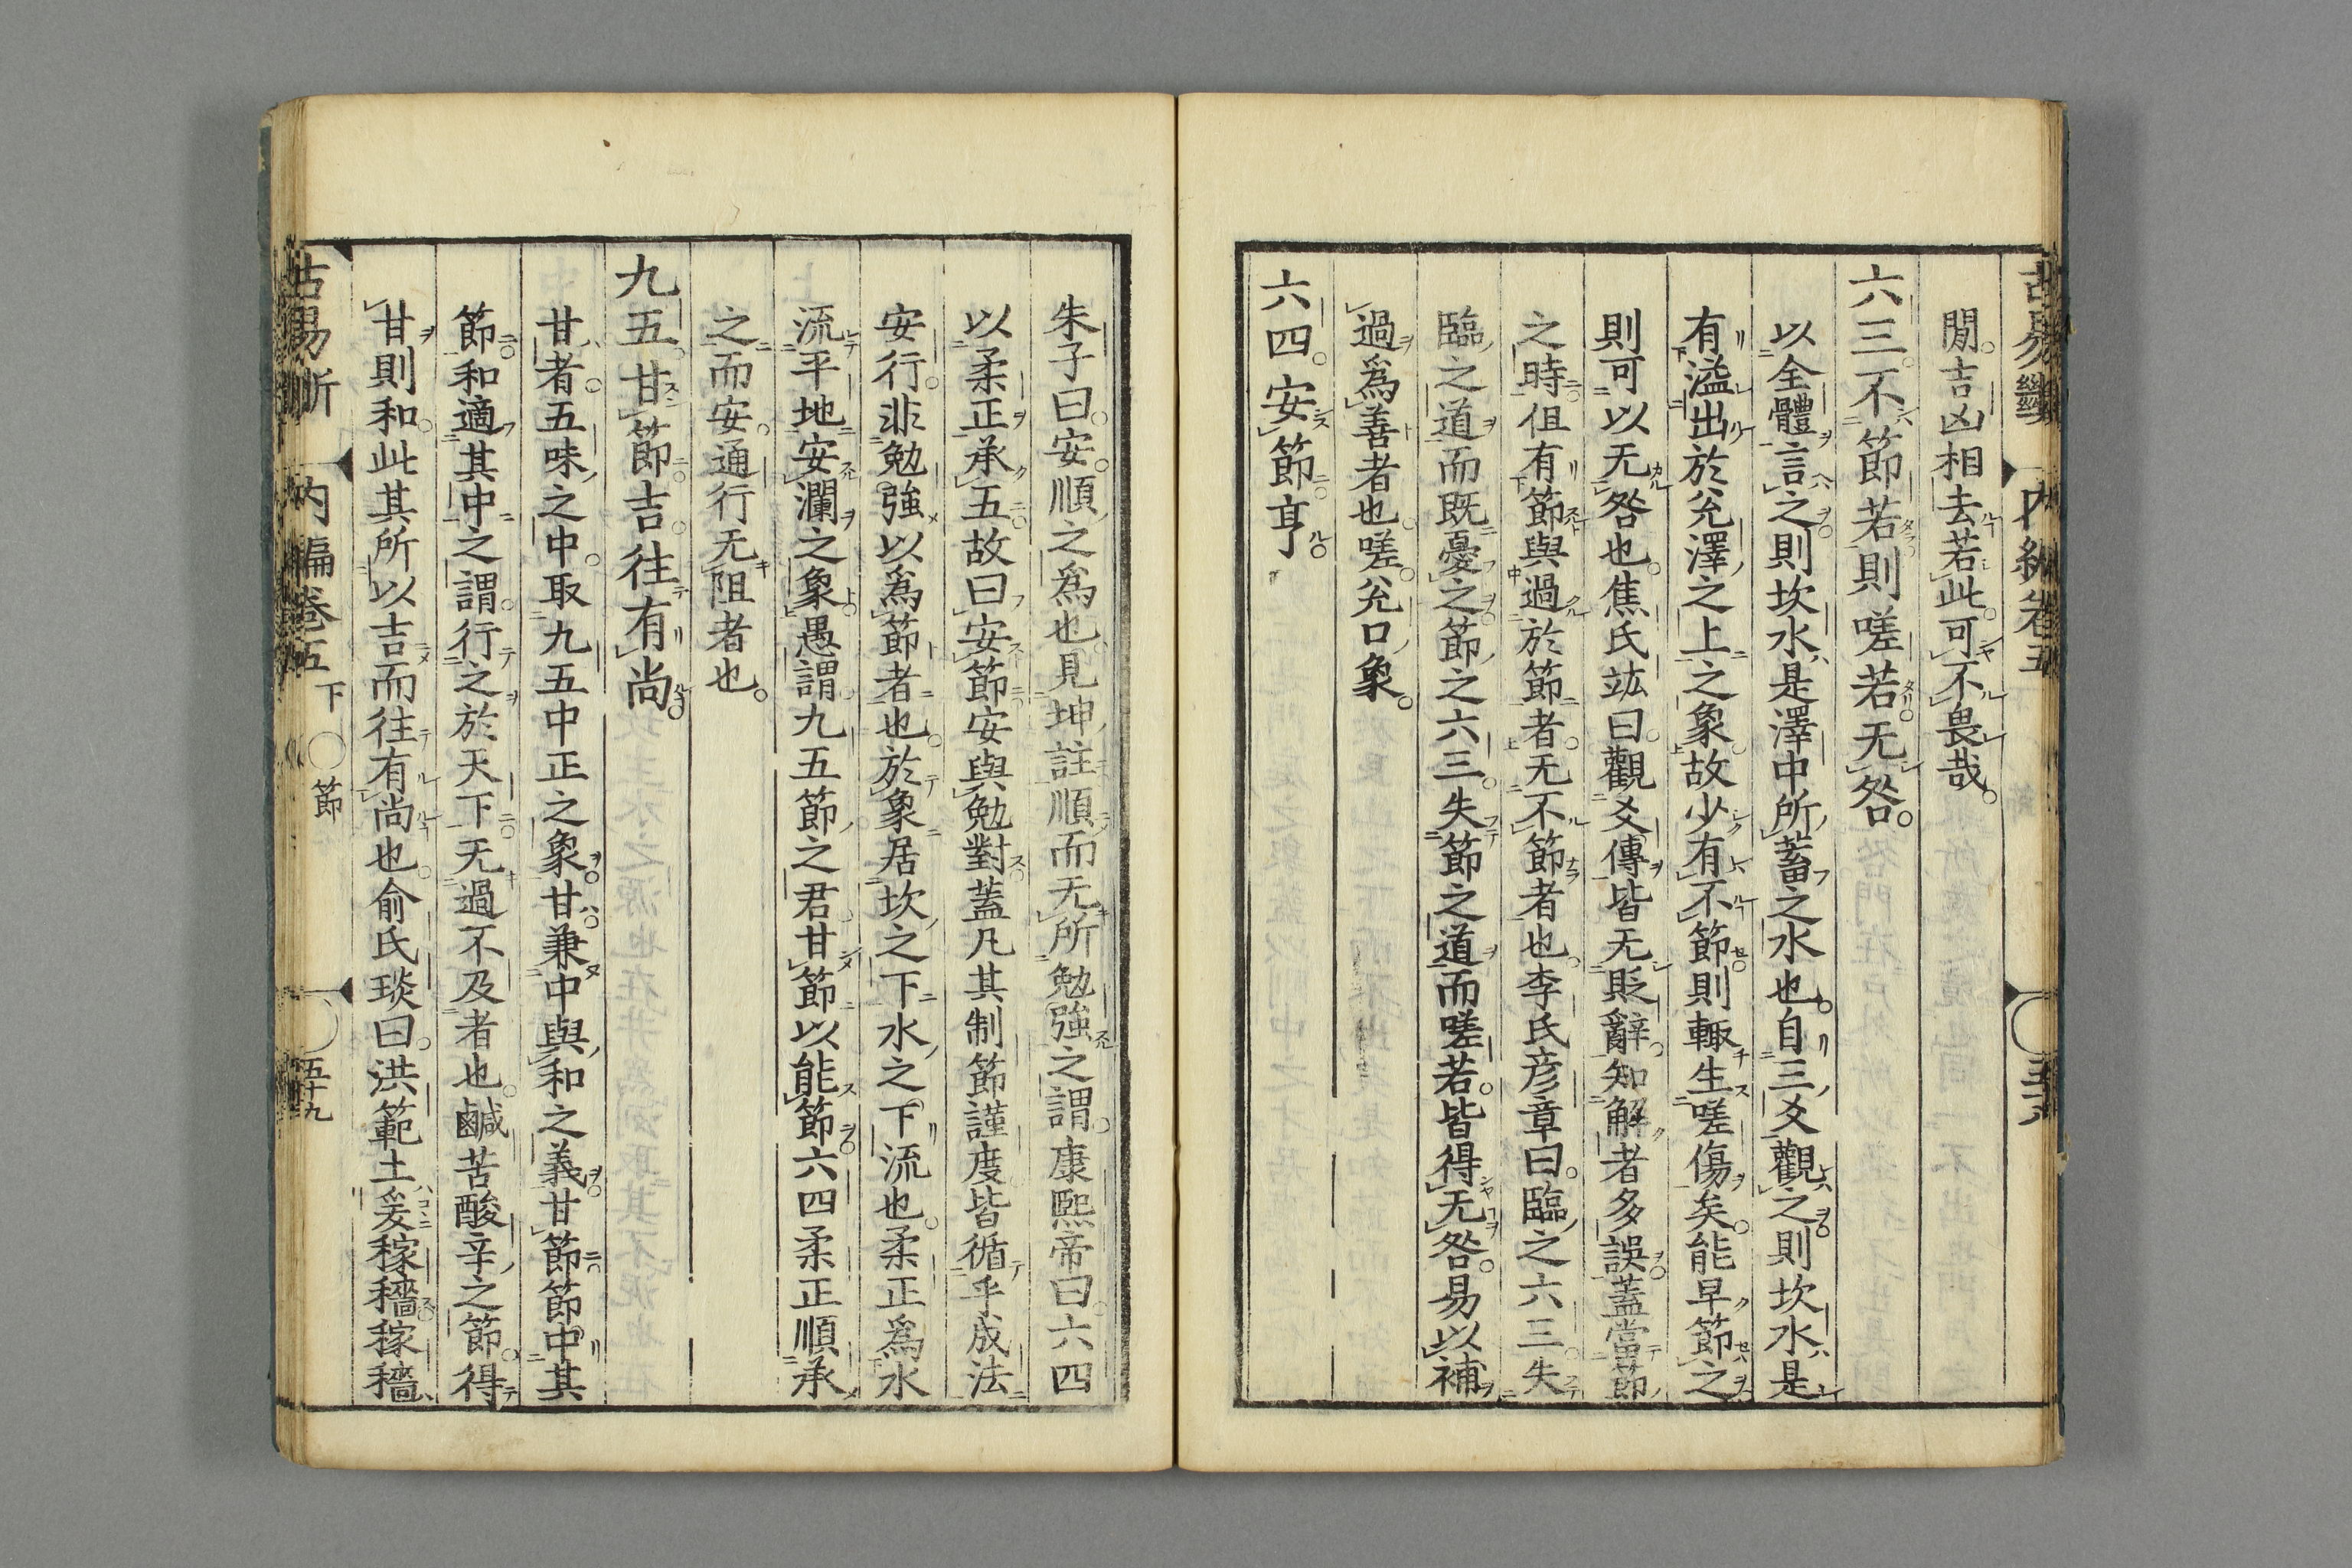 間吉凶相去若此可不畏哉
六三不節若則嗟若无咎
以全體言之則坎水是澤中所蓄之水也自三爻觀之則坎水是
有溢出於兌澤之上之象故少有不節則輙生嗟傷矣能早節之
則可以无咎也焦氏竑曰觀爻傳皆无貶辭知解者多誤蓋當節
之時但有節與過於節者无不節者也李氏彥章曰臨之六三失
臨之道而既憂之節之六三失節之道而嗟若皆得无咎易以補
過爲善者也嗟兌口象
六四安節亨
朱子曰安順之爲也見坤註順而无所勉強之謂康熙帝曰六四
以柔正承五故曰安節安與勉對蓋凡其制節謹度皆循乎成法
安行非勉強以爲節者也於象居坎之下水之下流也柔正爲水
流平地安瀾之象愚謂九五節之君甘節以能節六四柔正順承
之而安通行无阻者也
九五甘節吉往有尚
甘者五味之中取九五中正之象甘兼中與和之義甘節節中其
節和適其中之謂行之於天下无過不及者也鹹苦酸辛之節得
甘則和此其所以吉而往有尚也俞氏琰曰洪範土爰稼穡稼穡
古易斷 內編卷五 下 節 五十九